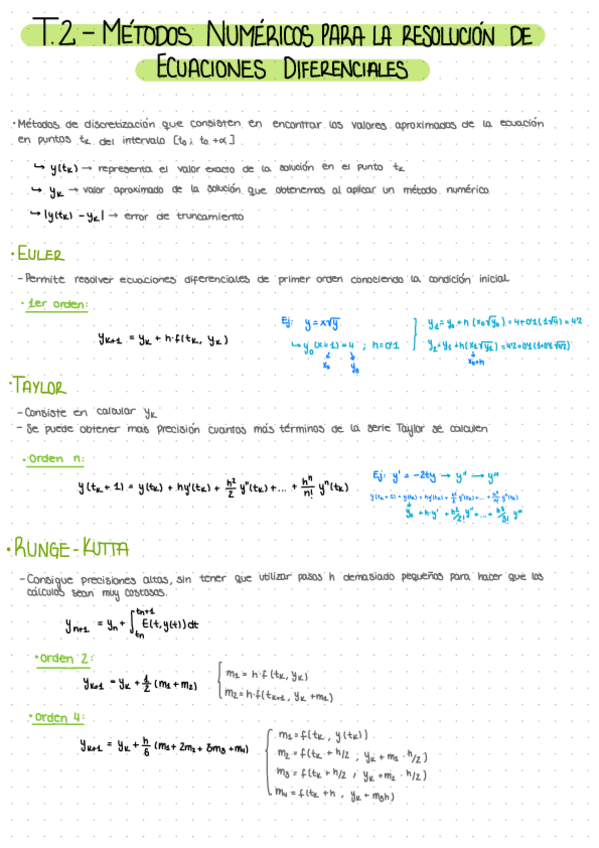 T.2 - MÉTODOS NUMÉRICOS PARA LA RESOLUCIÓN DE
ECUACIONES DIFERENCIALES
· Métodos de discretización que consisten en encontrar los valores aproximados de la ecuación
en puntos tₖ del intervalo [t₀; t₀+α].
↳ y(tₖ) → representa el valor exacto de la solución en el punto tₖ
↳ yₖ → valor aproximado de la solución que obtenemos al aplicar un método numérico
↳ |y(tₖ) - yₖ| → error de truncamiento
· EULER
- Permite resolver ecuaciones diferenciales de primer orden conociendo la condición inicial
· 1er orden:
yₖ₊₁ = yₖ + h·f(tₖ, yₖ)
Ej: y = x√y
↳ y₀(x=1) = 4 ; h=0'1
x₀ y₀
y₁ = y₀ + h (x₀√y₀) = 4+0'1(1√4) = 4'2
y₂ = y₁ + h(x₁√y₁) = 4'2+0'1(1+0'1√4'2)
x₀+h
· TAYLOR
- Consiste en calcular yₖ
- Se puede obtener mas precisión cuantos más términos de la serie Taylor se calculen
· Orden n:
y(tₖ + 1) = y(tₖ) + hy'(tₖ) + h²/2 y''(tₖ) + ... + hⁿ/n! yⁿ(tₖ)
Ej: y' = -2ty → y'' → y'''
· RUNGE - KUTTA
- Consigue precisiones altas, sin tener que utilizar pasos h demasiado pequeños para hacer que los
cálculos sean muy costosos.
yₙ₊₁ = yₙ + ∫ₜₙᵗⁿ⁺¹ E(t,y(t))dt
· Orden 2:
yₖ₊₁ = yₖ + 1/2 (m₁ + m₂)
m₁ = h·f(tₖ, yₖ)
m₂ = h·f(tₖ₊₁, yₖ + m₁)
· Orden 4:
yₖ₊₁ = yₖ + h/6 (m₁ + 2m₂ + 3m₃ + m₄)
m₁ = f(tₖ, y(tₖ))
m₂ = f(tₖ + h/2 ; yₖ + m₁ · h/2)
m₃ = f(tₖ + h/2 ; yₖ + m₂ · h/2)
m₄ = f(tₖ + h , yₖ + m₃h)